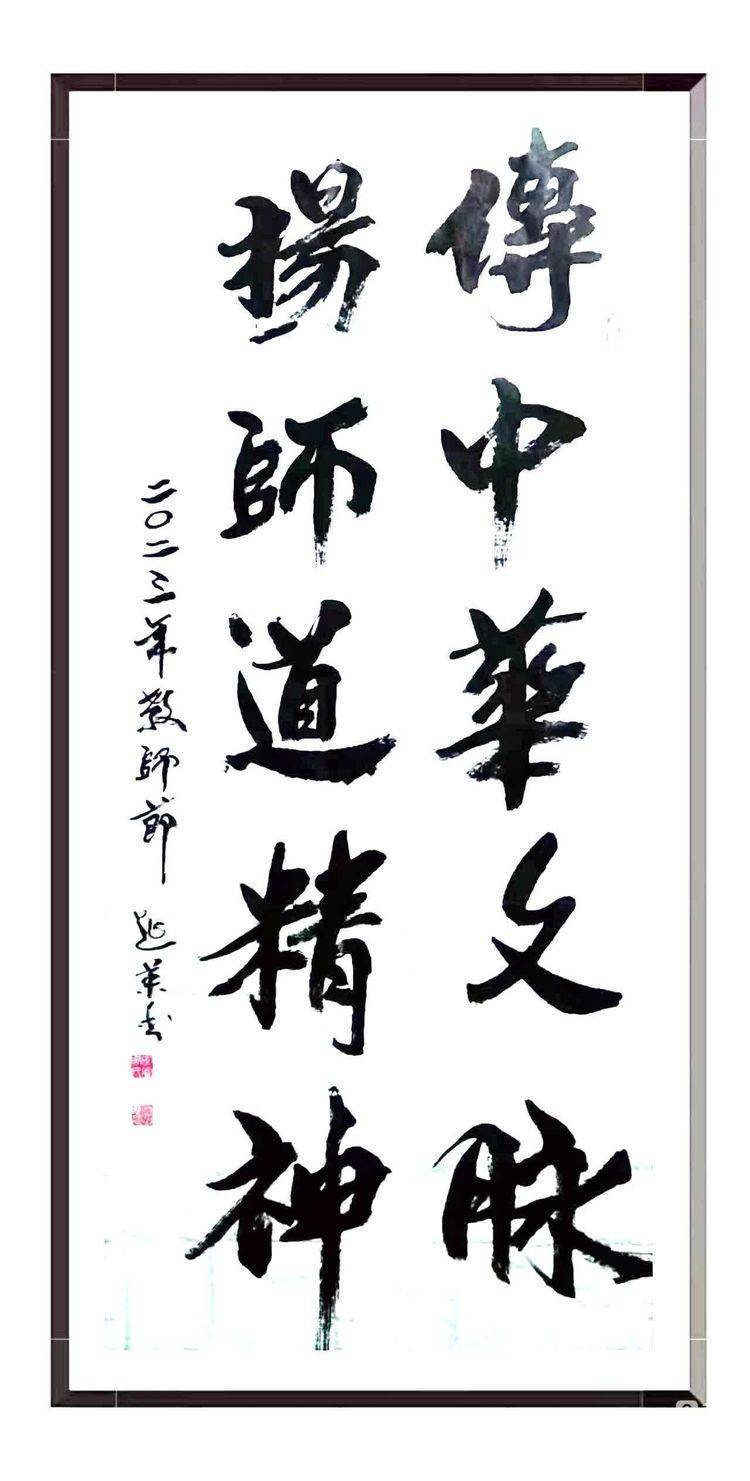 傳中華文脉
揚師道精神
二〇二三年教師節
延荣书